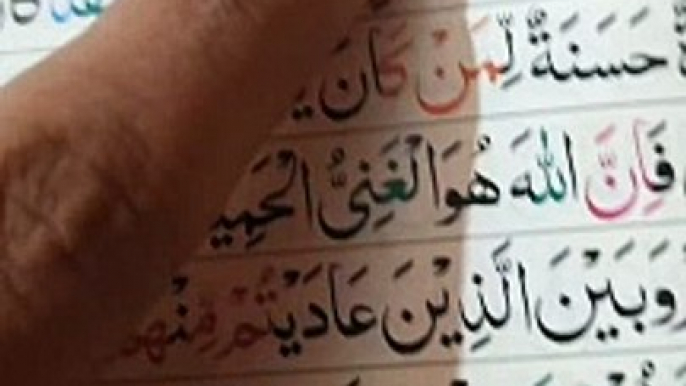 حَسَنَةٌ لِّمَنْ كَانَ
فَاِنَّ اللّٰهَ هُوَ الْغَنِىُّ الْحَمِي
وَبَيْنَ الَّذِيْنَ عَادَيْتُمْ مِّنْهُمْ